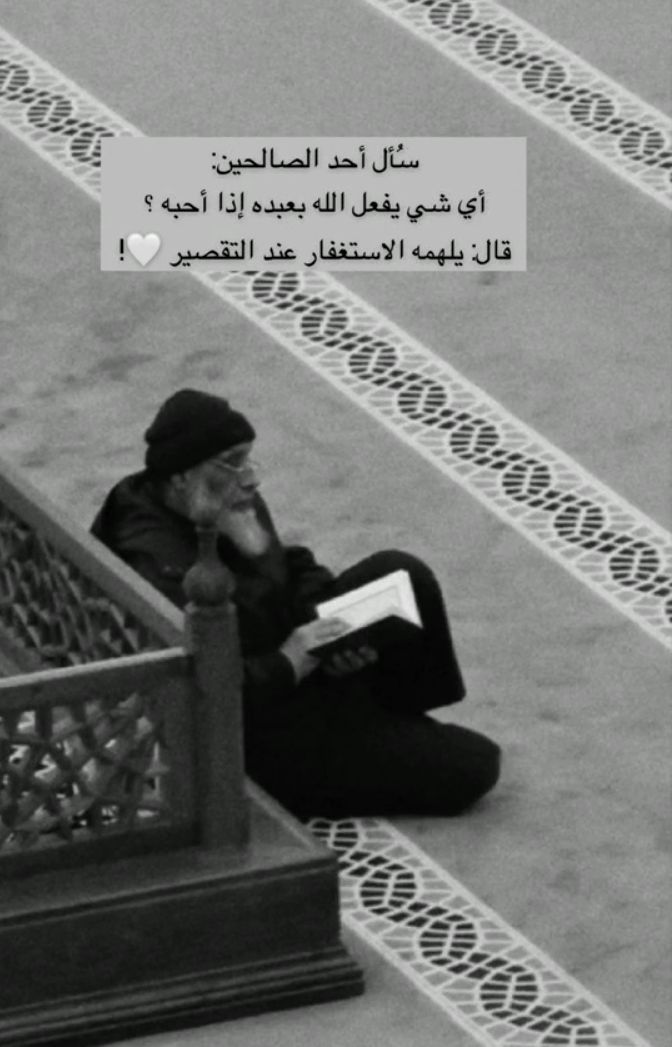 سُأل أحد الصالحين:
أي شي يفعل الله بعبده إذا أحبه ؟
قال: يلهمه الاستغفار عند التقصير 🤍!